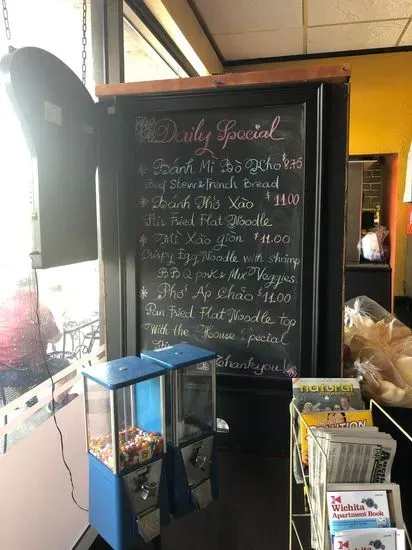 Daily Special
* Bánh Mì Bò Kho $8.75
Beef Stew & french Bread
* Bánh Phở Xào $11.00
Stir Fried Flat Noodle
* Mì Xào giòn $11.00
Crispy Egg Noodle with shrimp
BBQ pork & Mix Veggies
* Phở Áp Chảo $11.00
Pan Fried Flat Noodle top
With the House Special
Thankyou!
natural
Wichita
Apartment Book